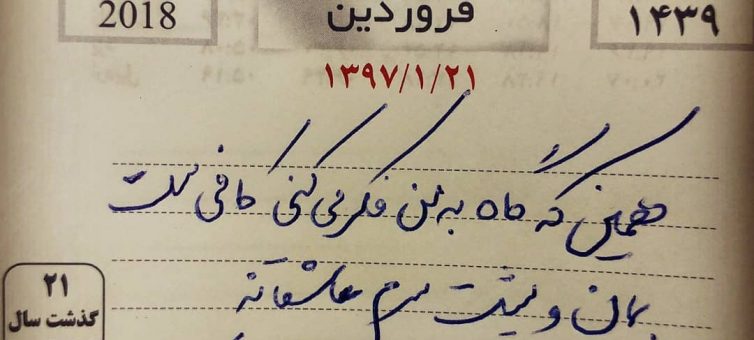 2018 فروردین ۱۴۳۹
۱۳۹۷/۱/۲۱
همین که گاه به من فکر می کنی کافی است
بمان و پشت سرم عاشقانه
۲۱
گذشت سال